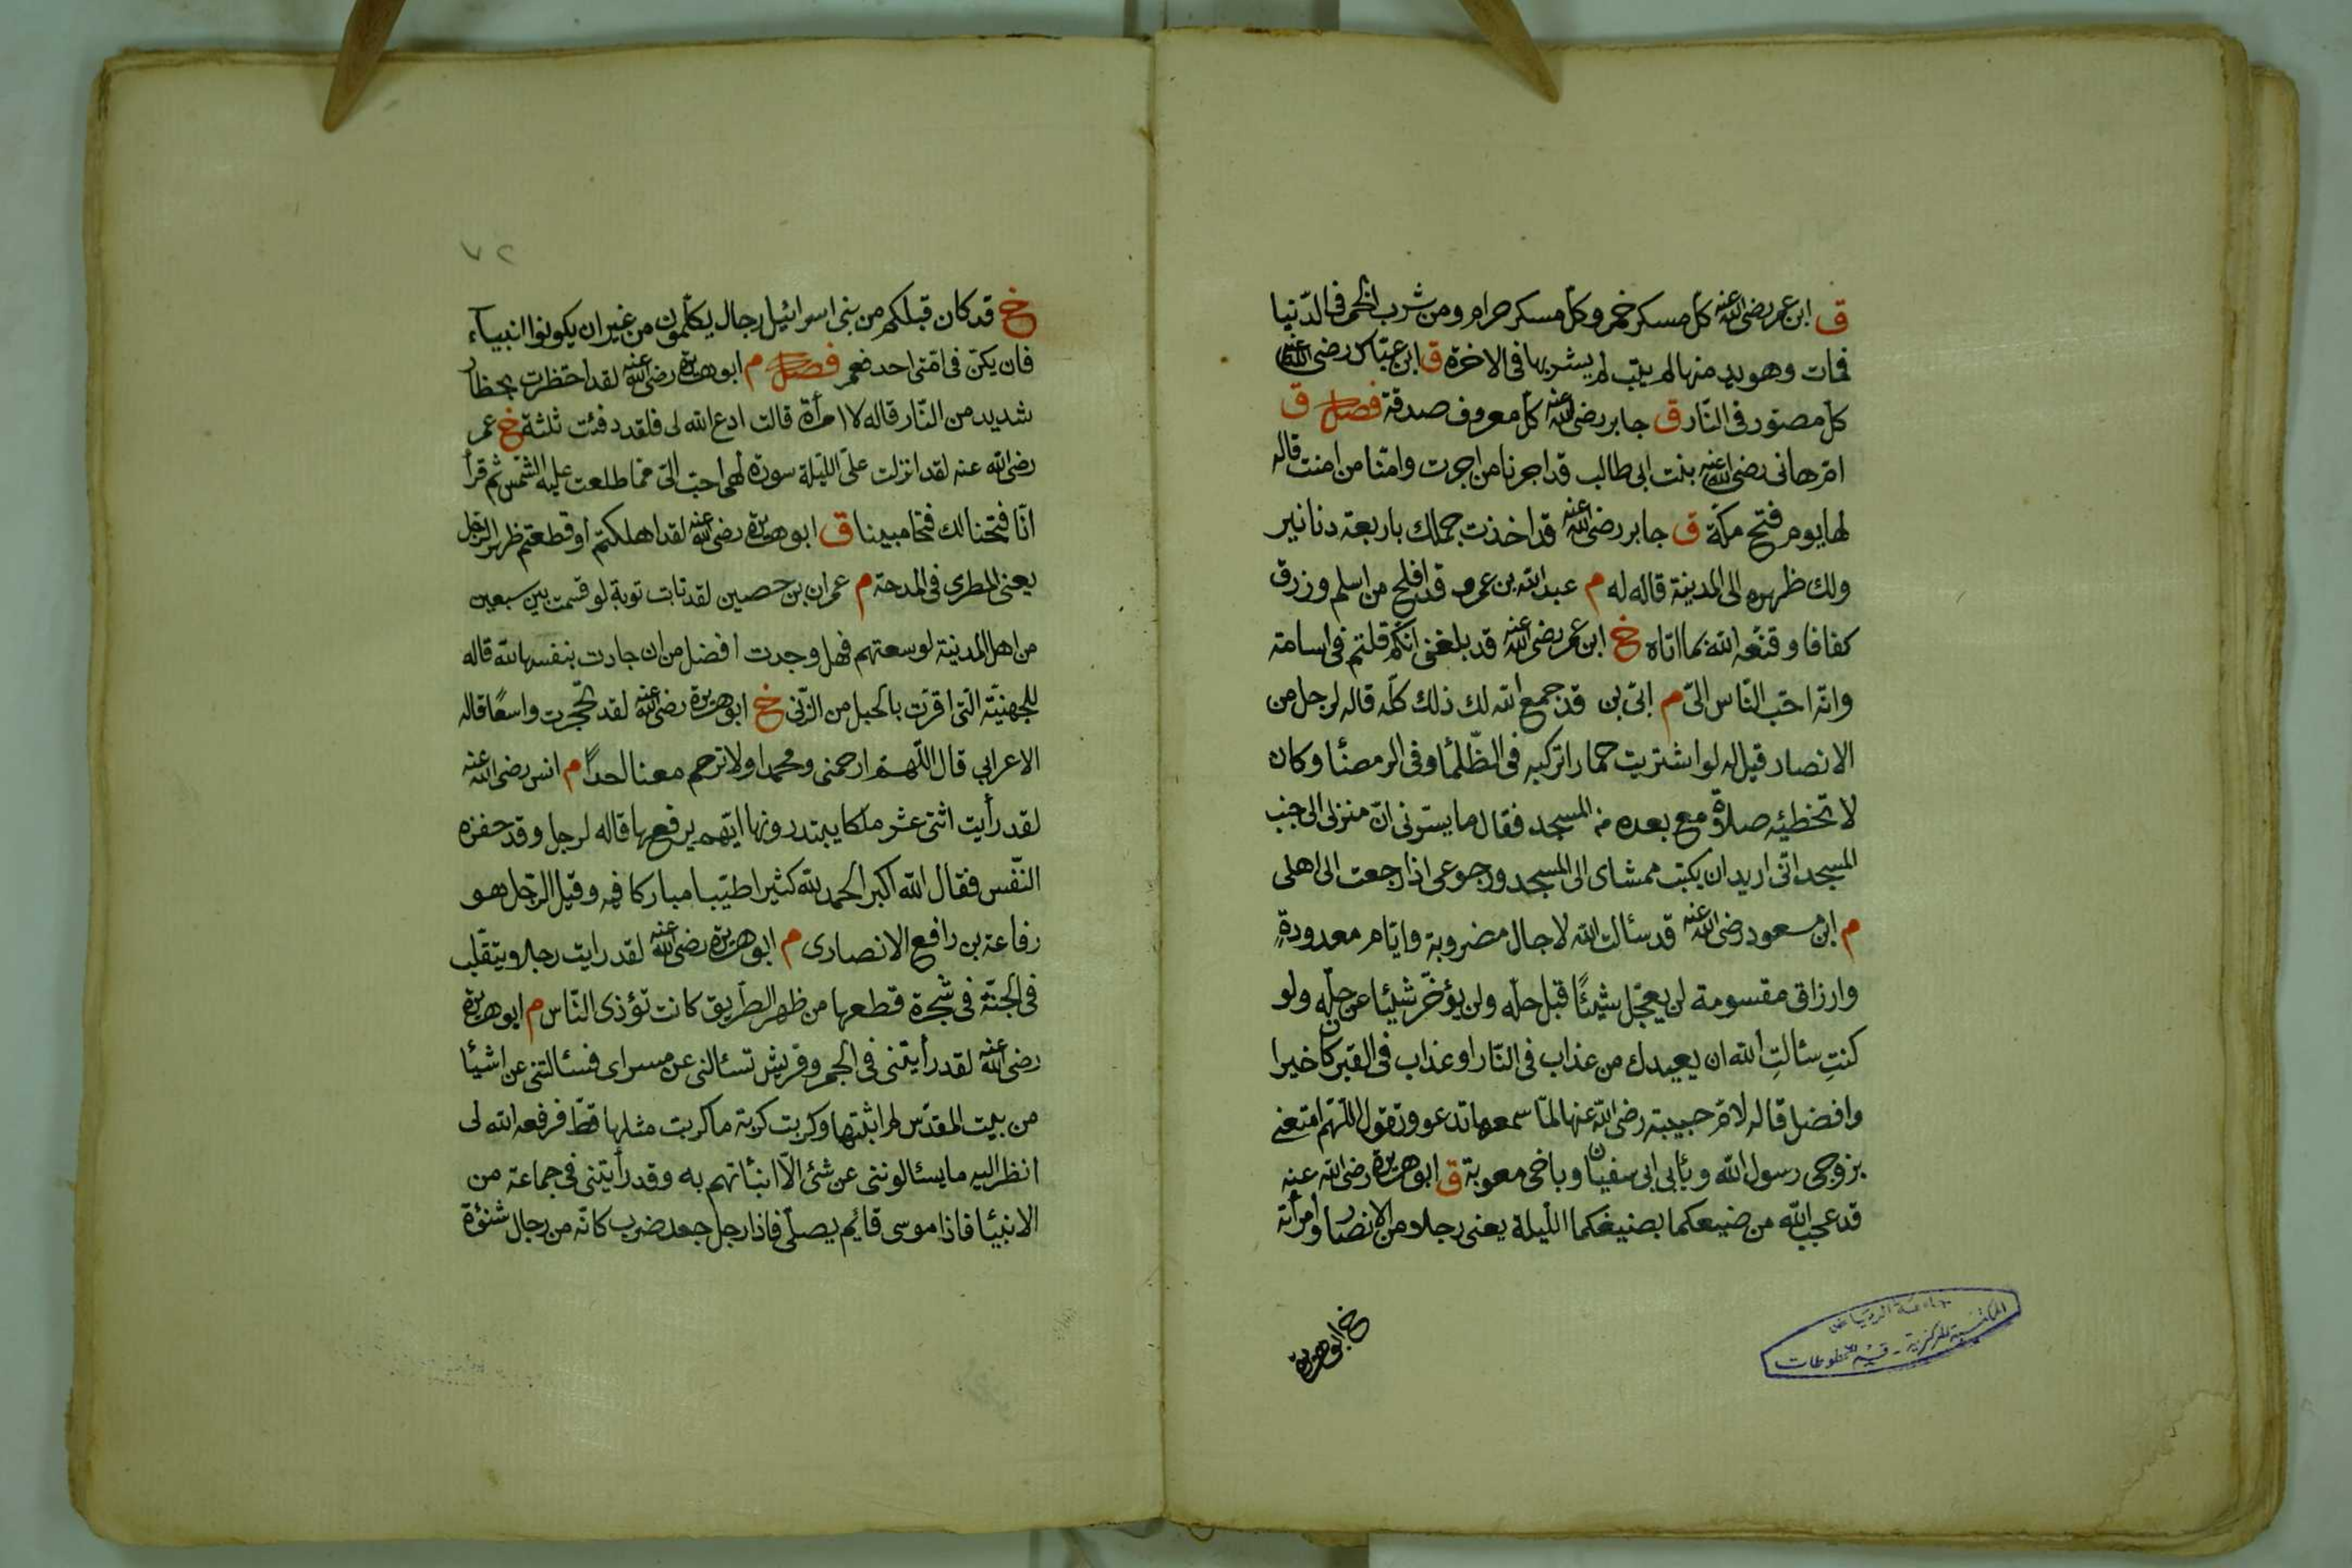 ق ابن عمر رضى الله عنه كل مسكر خمر وكل مسكر حرام ومن شرب الخمر فى الدّنيا
فمات وهو يدمنها لم يتب لم يشربها فى الاخرة ق ابن عبّاس رضى الله عنه
كل مصوّر فى النّار ق جابر رضى الله عنه كل معروف صدقة فصل ق
امّ هانى رضى الله عنه بنت ابى طالب قد اجرنا من اجرت وامّنا من امنت قاله
لها يوم فتح مكّة ق جابر رضى الله عنه قد اخذت جملك باربعة دنانير
ولك ظهره الى المدينة قاله له م عبد الله بن عمرو قد افلح من اسلم ورزق
كفافا وقنّعه الله بما اتاه خ ابن عمر رضى الله عنه قد بلغنى انّكم قلتم فى اسامة
وانّه احبّ النّاس الىّ م ابىّ بن قد جمع الله لك ذلك كلّه قاله لرجل من
الانصار قيل له لو اشتريت حمارا تركبه فى الظّلمأ وفى الرمضأ وكان
لا تخطيه صلاة مع بعده من المسجد فقال ما يسرّنى انّ منزلى الى جنب
المسجد انّى اريد ان يكتب ممشاى الى المسجد ورجوعى اذا رجعت الى اهلى
م ابن مسعود رضى الله عنه قد سألت الله لاجال مضروبة وايّام معدودةٍ
وارزاق مقسومة لن يعجّل شيئًا قبل حلّه ولن يؤخّر شيئا عن حلّه ولو
كنتِ سئالتِ الله ان يعيدك من عذاب فى النّار او عذاب فى القبر كان خيرا
وافضل قاله لامّ حبيبة رضى الله عنها لمّا سمعها تدعو وتقول اللّهم امتعنى
بزوجى رسول الله وبأبى ابى سفيان وباخى معوية ق ابو هريرة رضى الله عنه
قد عجب الله من صنيعكما بضيفكما اللّيلة يعنى رجلا من الانصار وامرأته
خ ابو هريرة
جامعة الرياض
المكتبة المركزية - قسم المخطوطات
٧٢
خ قد كان قبلكم من بنى اسرائيل رجال يكلّمون من غير ان يكونوا انبيآء
فان يكن فى امّتى احد فعمر فصل م ابو هريرة رضى الله عنه لقد احتظرت بحظار
شديد من النّار قاله لامرأة قالت ادع الله لى فلقد دفنت ثلثة خ عمر
رضى الله عنه لقد انزلت علىّ اللّيلة سورة لهى احبّ الىّ ممّا طلعت عليه الشّمس ثم قرأ
انّا فتحنا لك فتحا مبينا ق ابو هريرة رضى الله عنه لقد اهلكتم او قطعتم ظهر الرّجل
يعنى المطرى فى المدحة م عمران بن حصين لقد تابت توبة لو قسمت بين سبعين
من اهل المدينة لوسعتهم فهل وجدت افضل من ان جادت بنفسها لله قاله
للجهنيّة الّتى اقرّت بالحبل من الزّنى خ ابو هريرة رضى الله عنه لقد تحجّرت واسعًا قاله
الاعرابي قال اللّهمّ ارحمنى ومحمدا ولا ترحم معنا احداً م انس رضى الله عنه
لقد رأيت اثنى عشر ملكا يبتدرونها ايّهم يرفعها قاله لرجل وقد حفزه
النّفس فقال الله اكبر الحمد لله كثيرا طيّبا مباركا فيه وقيل الرّجل هو
رفاعة بن رافع الانصارى م ابو هريرة رضى الله عنه لقد رايت رجلا ويتقلّب
فى الجنّة فى شجرة قطعها من ظهر الطّريق كانت تؤذى النّاس م ابو هريرة
رضى الله عنه لقد رأيتنى فى الحجر وقريش تسئالنى عن مسراى فسئالتنى عن اشيأ
من بيت المقدّس لم اثبتها وكربت كربة ما كربت مثلها قطّ فرفعه الله لى
انظر اليه ما يسئالوننى عن شئ الّا انبئاتهم به وقد رأيتنى فى جماعة من
الانبيأ فاذا موسى قايم يصلّى فاذا رجل جعد ضرب كانّه من رجال شنؤة